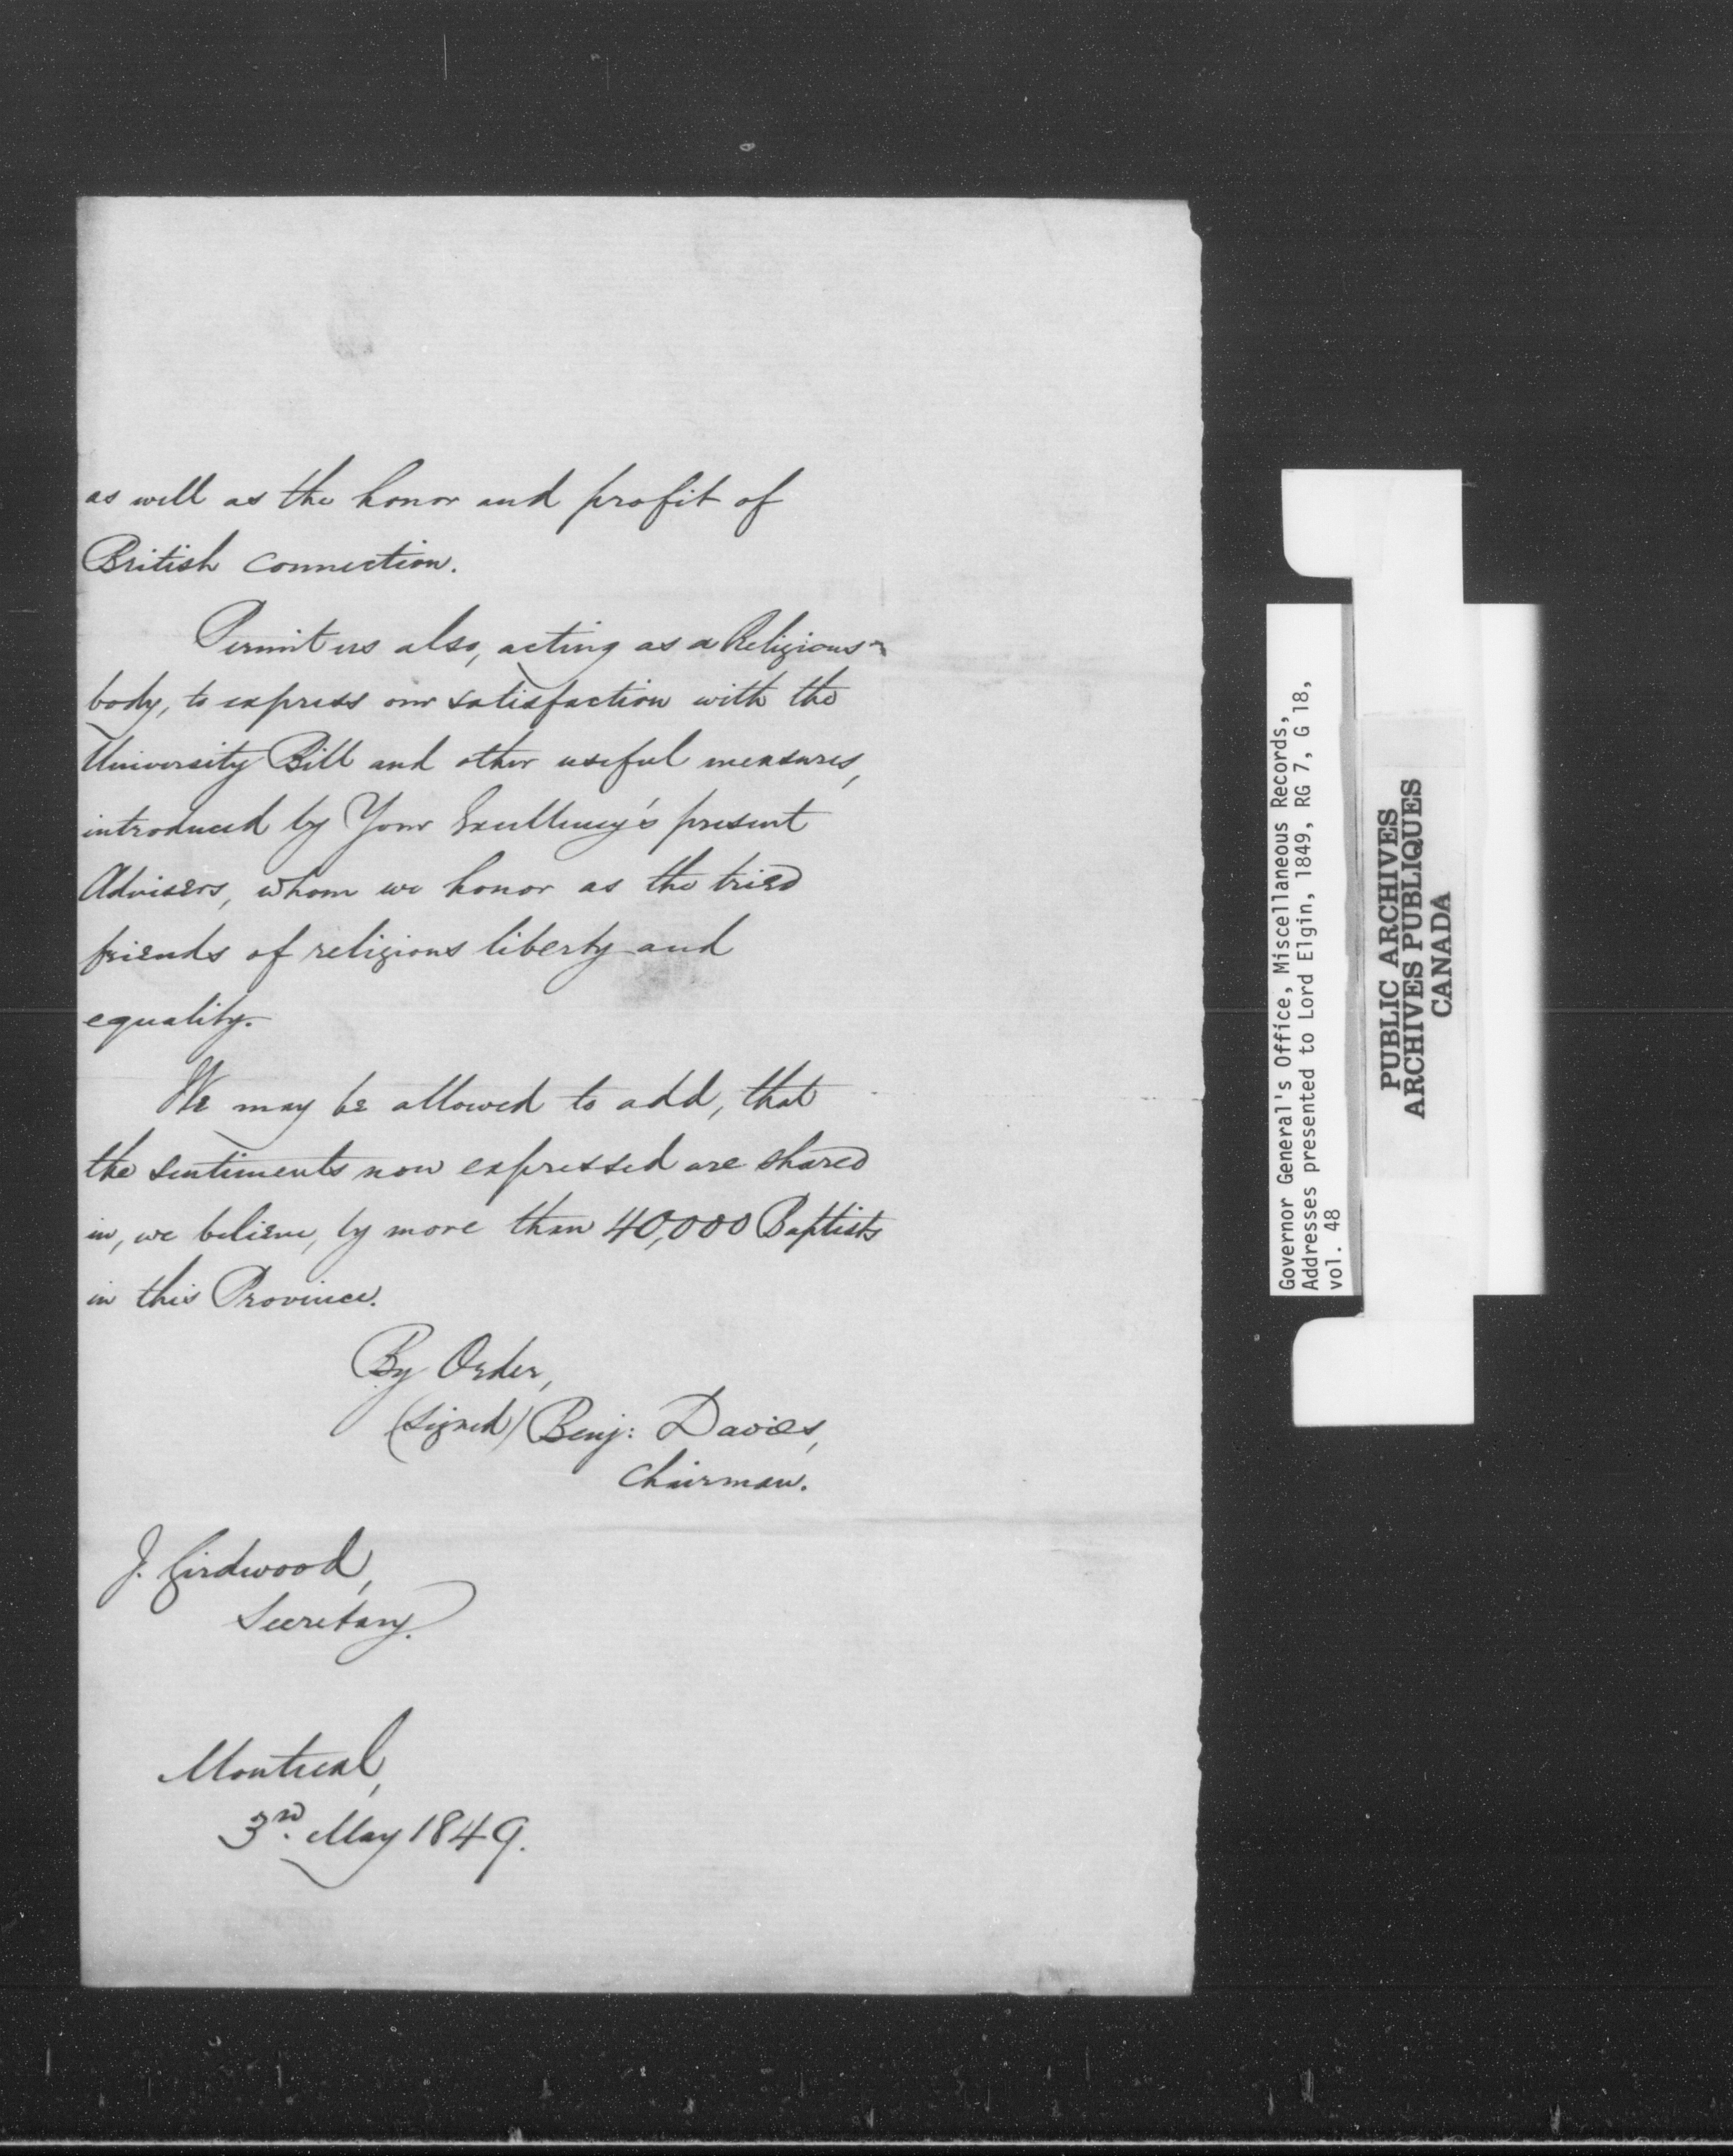 as well as the honor and profit of
British connection.
Permit us also, acting as a Religious
body, to express our satisfaction with the
University Bill and other useful measures,
introduced by Your Excellency's present
Advisers, whom we honor as the tried
friends of religious liberty and
equality.
We may be allowed to add, that
the sentiments now expressed are shared
in, we believe, by more than 40,000 Baptists
in this Province.
By Order,
(Signed) Benj: Davies,
Chairman.
J. Girdwood,
Secretary.
Montreal,
3rd. May 1849.
Governor General's Office, Miscellaneous Records,
Addresses presented to Lord Elgin, 1849, RG 7, G 18,
vol. 48
PUBLIC ARCHIVES
ARCHIVES PUBLIQUES
CANADA